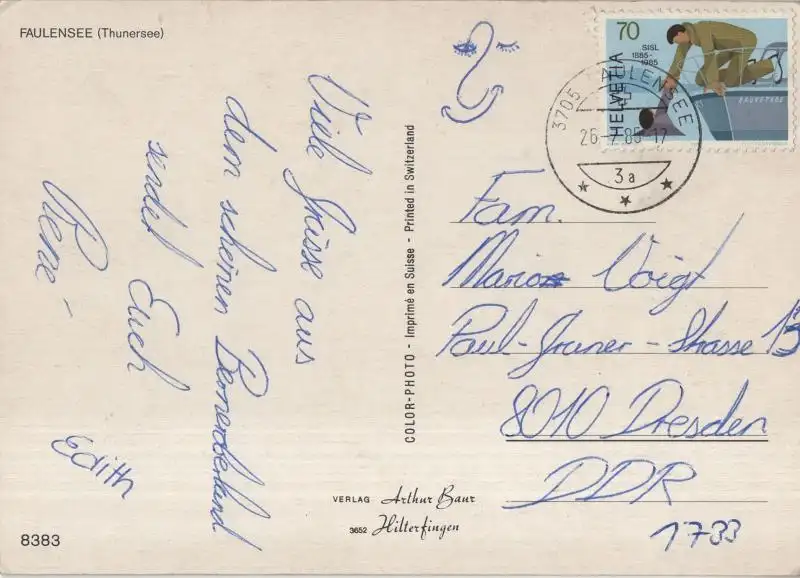 FAULENSEE (Thunersee)
Viele Grüsse aus
dem schönen Berneroberland
sendet Euch
René -
Edith
8383
COLOR-PHOTO - Imprimé en Suisse - Printed in Switzerland
VERLAG Arthur Baur
3652 Hilterfingen
70
SISL
1885-
1985
HELVETIA
3705 FAULENSEE
26.-7.85-17
3a
Fam.
Mario Voigt
Paul-Gruner-Strasse 15
8010 Dresden
DDR
1733